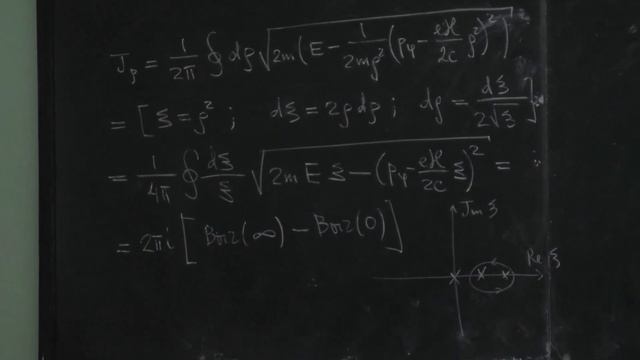 J_ρ = 1/2π ∮ dρ √(2m(E − 1/2mρ² (p_φ − eℋ/2c ρ²)²))
= [ξ = ρ² ; dξ = 2ρdρ ; dρ = dξ/2√ξ]
= 1/4π ∮ dξ/ξ √(2mEξ − (p_φ − eℋ/2c ξ)²) =
= 2πi [ (∞) − (0) ]
Jm ξ
Re ξ